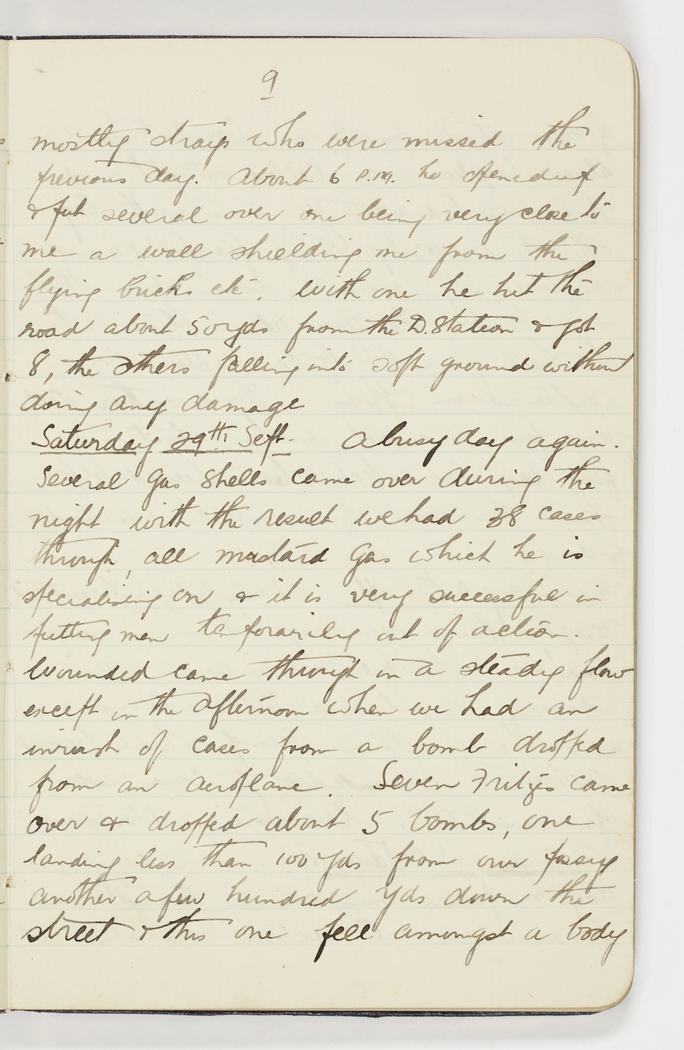 9
mostly strays who were missed the
previous day. About 6 P.M. he opened up
& put several over one being very close to
me a wall shielding me from the
flying bricks etc. With one he hit the
road about 50 yds from the D. Station & got
8, the others falling into soft ground without
doing any damage
Saturday 29th Sept. A busy day again.
Several Gas Shells came over during the
night with the result we had 38 cases
through, all mustard Gas which he is
specialising on & it is very successful in
putting men temporarily out of action.
Wounded came through in a steady flow
except in the afternoon when we had an
inrush of cases from a bomb dropped
from an aeroplane. Seven Fritzes came
over & dropped about 5 bombs, one
landing less than 100 yds from our
another a few hundred yds down the
street & this one fell amongst a body